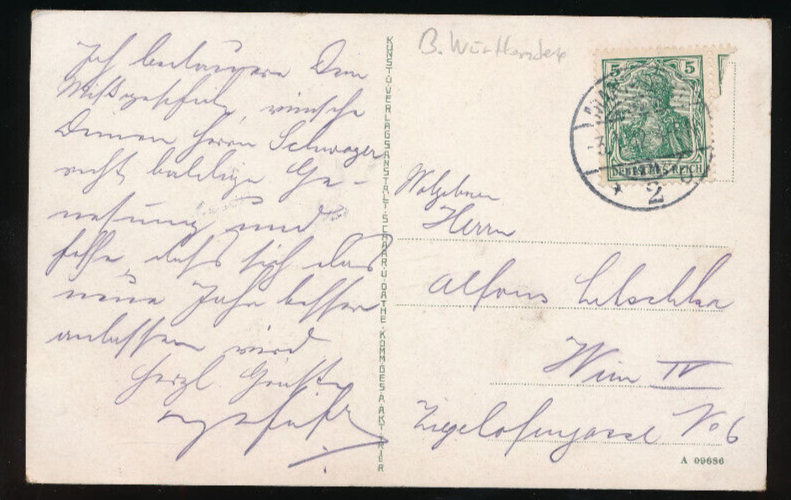 Ich bedauere Dein
Mißgeschick, wünsche
Deinem Herrn Schwager
recht baldige Ge-
nesung und
hoffe, daß sich das
neue Jahr besser
anlassen wird
Herzl. Grüße
KUNST-U-VERLAGSANSTALT-SCHAAR U DATHE · KOMM GES A AKT TRIER
B. Württemberg
5 5
DEUTSCHES REICH
2
Herrn
Alfons
Wien IV
Ziegelofengasse No 6
A 09686